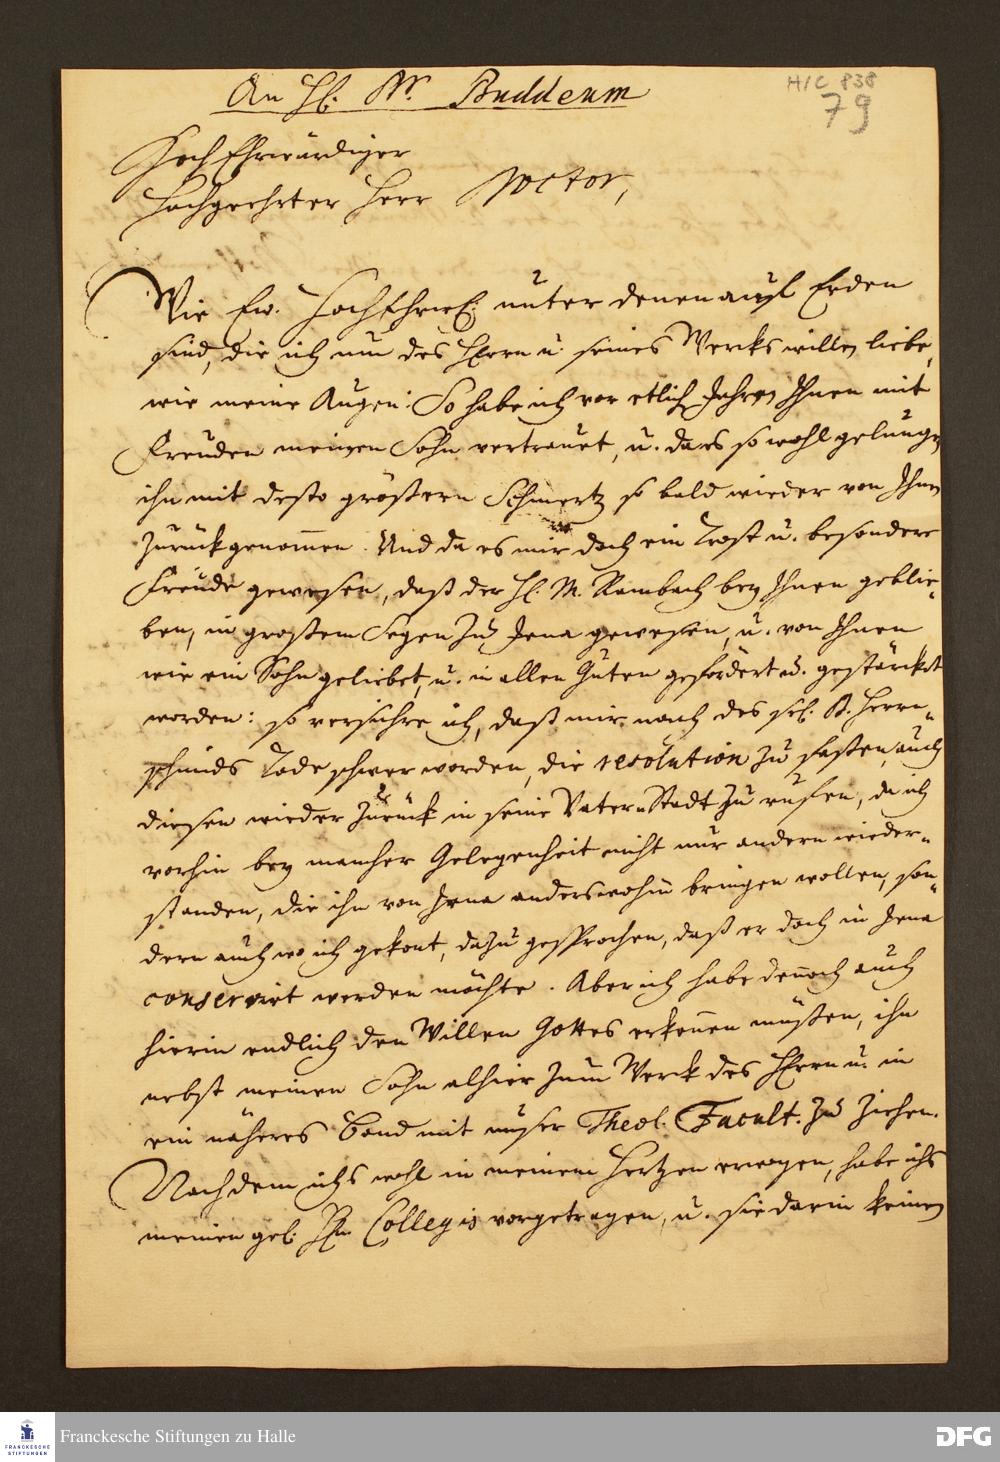 An H. D. Buddeum
H/C 838
79
HochEhrwürdiger
Hochgeehrter Herr Doctor,
Wie Ew. HochEhrw. unter denen auf Erden
sind, die ich um des HErrn u. seines Wercks willen liebe,
wie meine Augen: So habe ich vor etlich Jahren Ihnen mit
Freuden meinen Sohn vertrauet, u. da es so wohl gelungen
ihn mit desto größern Schmertz so bald wieder von Ihnen
zurückgenommen. Und da es mir doch ein Trost u. besondere
Freude gewesen, daß der H. M. Rambach bey Ihnen geblie-
ben, in großem Segen zu Jena gewesen, u. von Ihnen
wie ein Sohn geliebet, u. in allen Guten gefördert u. gestärcket
worden: so versichre ich, daß mir nach des sel. D. Herrn-
schmids Tode schwer worden, die resolution zu faßen, auch
diesen wieder zurück in seine Vater-Stadt zu rufen, da ich
vorhin bey mancher Gelegenheit nicht nur andern wieder-
standen, die ihn von Jena anderswohin bringen wollen, son-
dern auch wo ich gekont, dazu gesprochen, daß er doch in Jena
conserviret werden möchte. Aber ich habe dennoch auch
hierin endlich den Willen Gottes erkennen müßen, ihn
nebst meinen Sohn alhier zum Werck des HErrn u. in
ein näheres Band mit unser Theol. Facult. zu ziehen.
Nachdem ichs wohl in meinem Hertzen erwogen, habe ichs
meinen gel. Hn. Collegis vorgetragen, u. sie darin keinen
FRANCKESCHE
STIFTUNGEN
Franckesche Stiftungen zu Halle
DFG